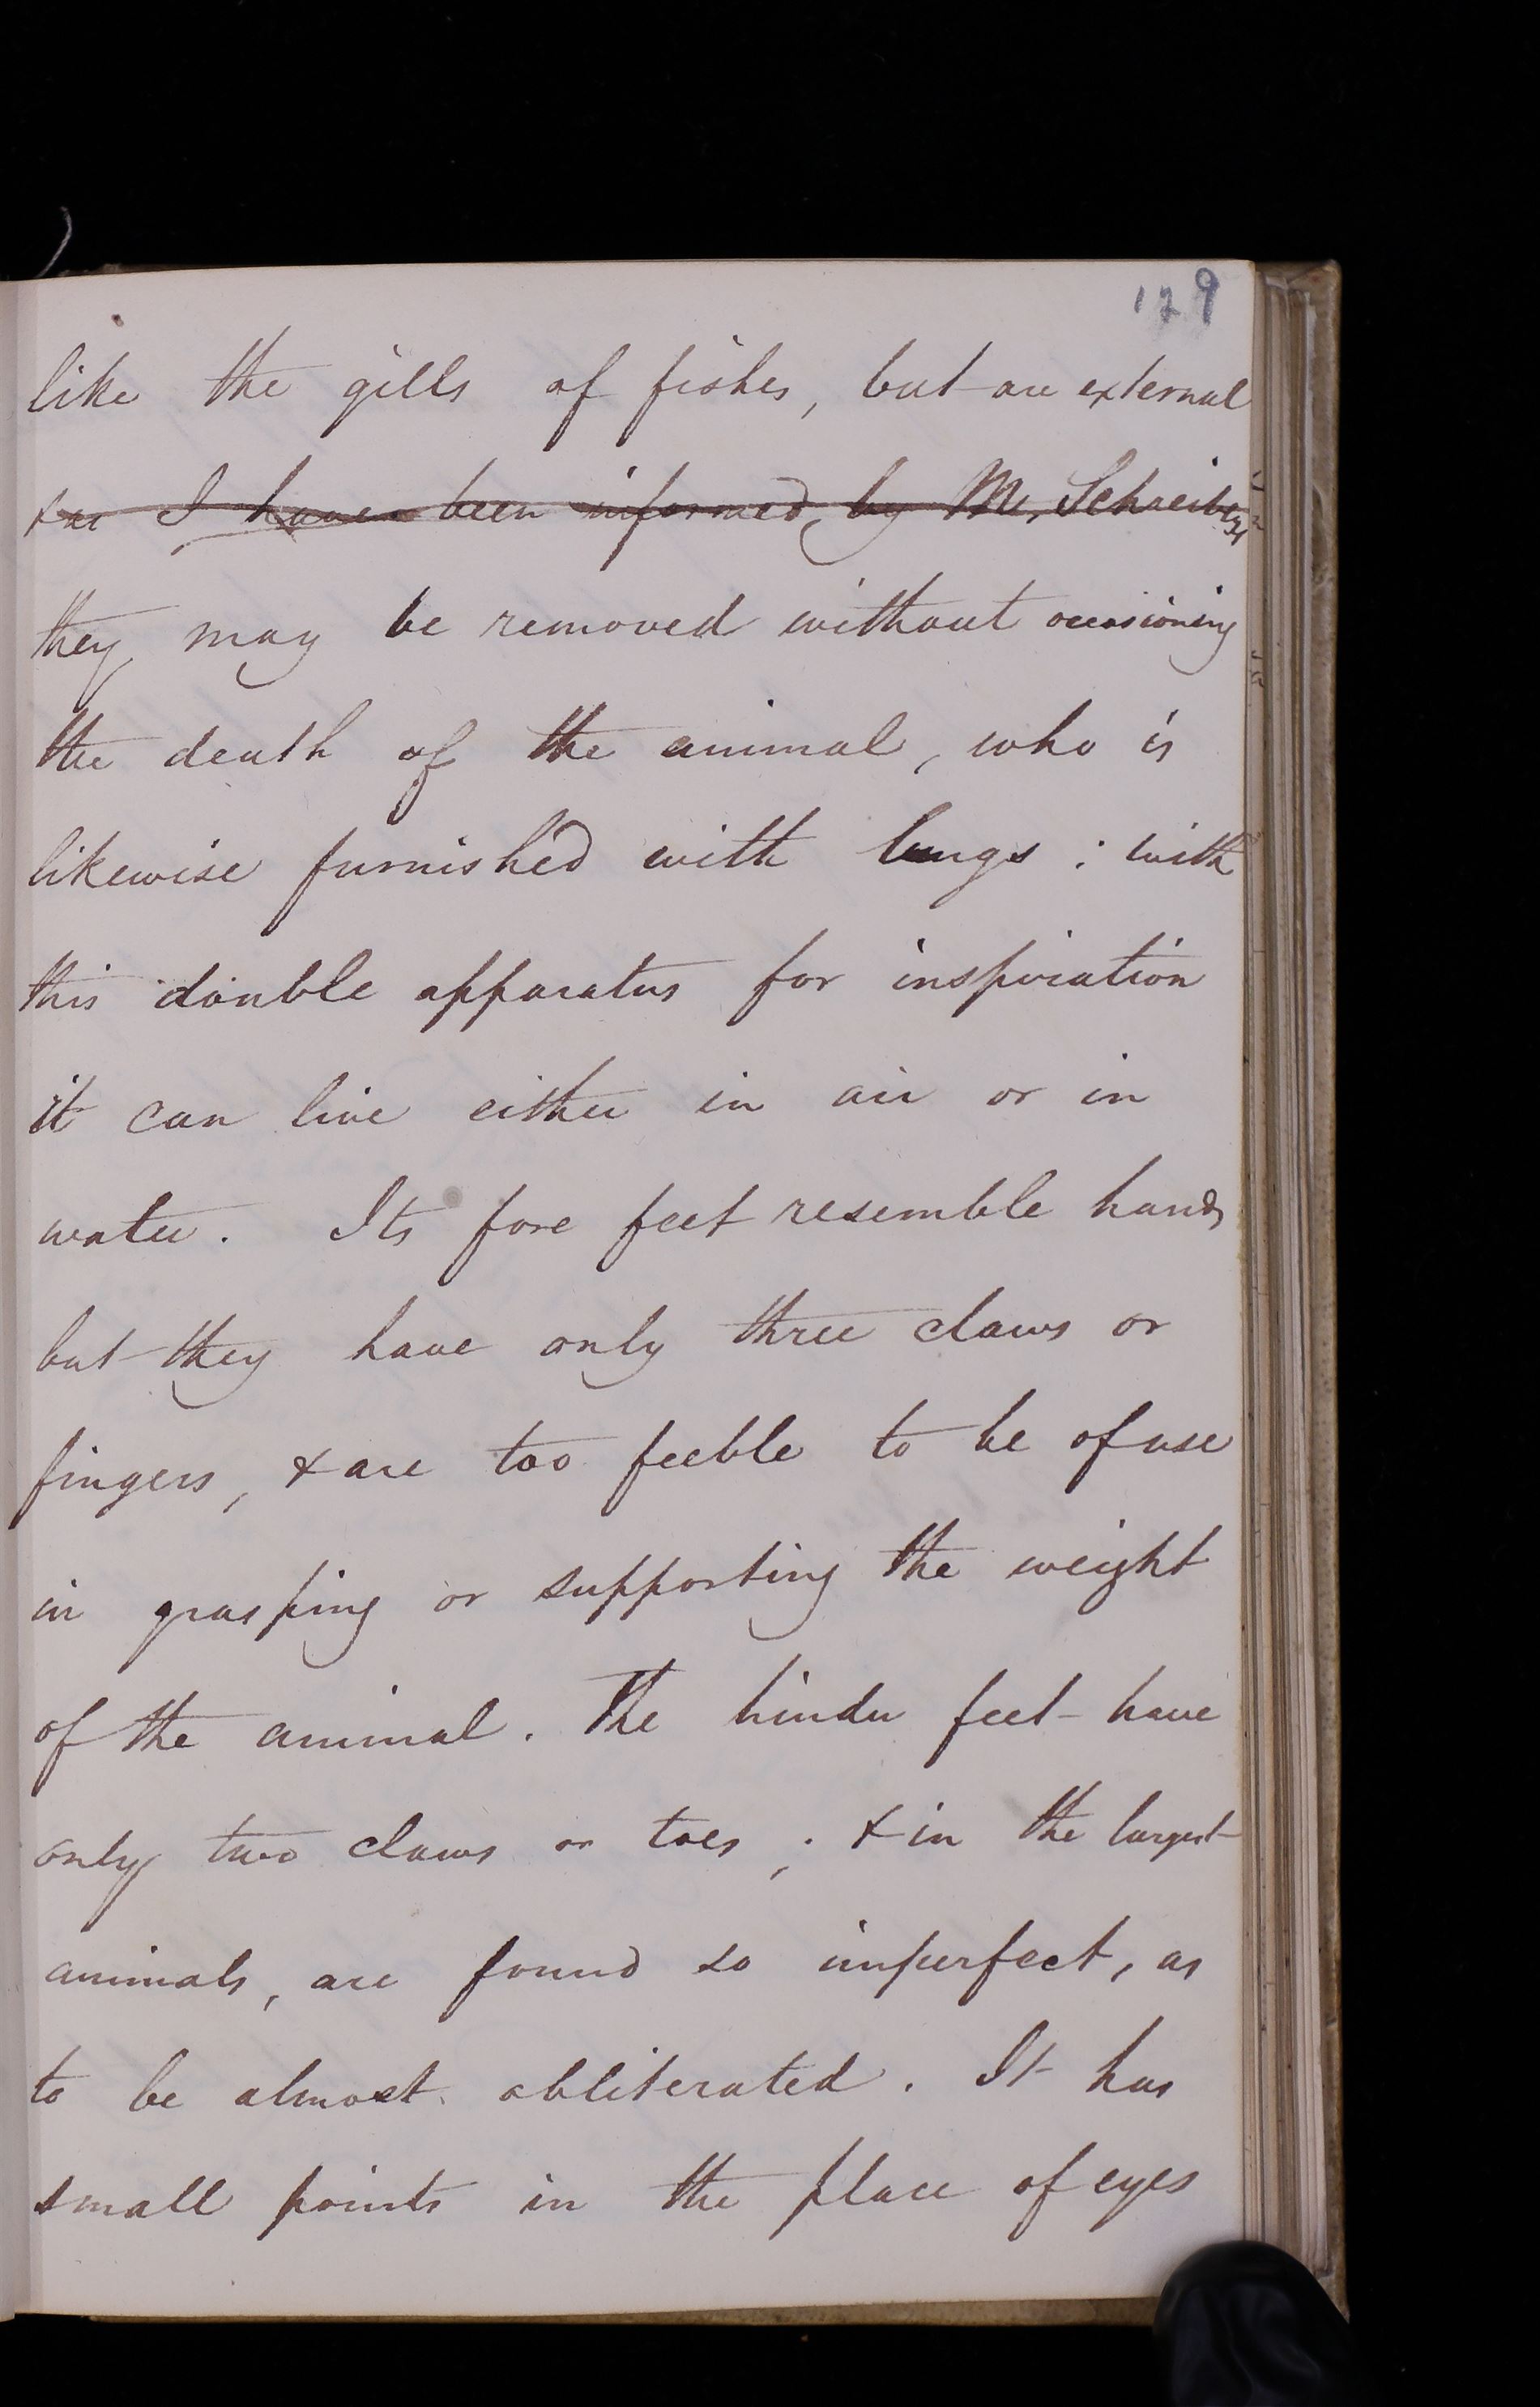 129
like the gills of fishes, but are external
& as I have been informed, by Mr. Schreibers
they may be removed without occasioning
the death of the animal, who is
likewise furnished with lungs: with
this double apparatus for inspiration
it can live either in air or in
water. Its fore feet resemble hands
but they have only three claws or
fingers, & are too feeble to be of use
in grasping or supporting the weight
of the animal. The hinder feet have
only two claws or toes; & in the largest
animals, are found so imperfect, as
to be almost obliterated. It has
small points in the place of eyes